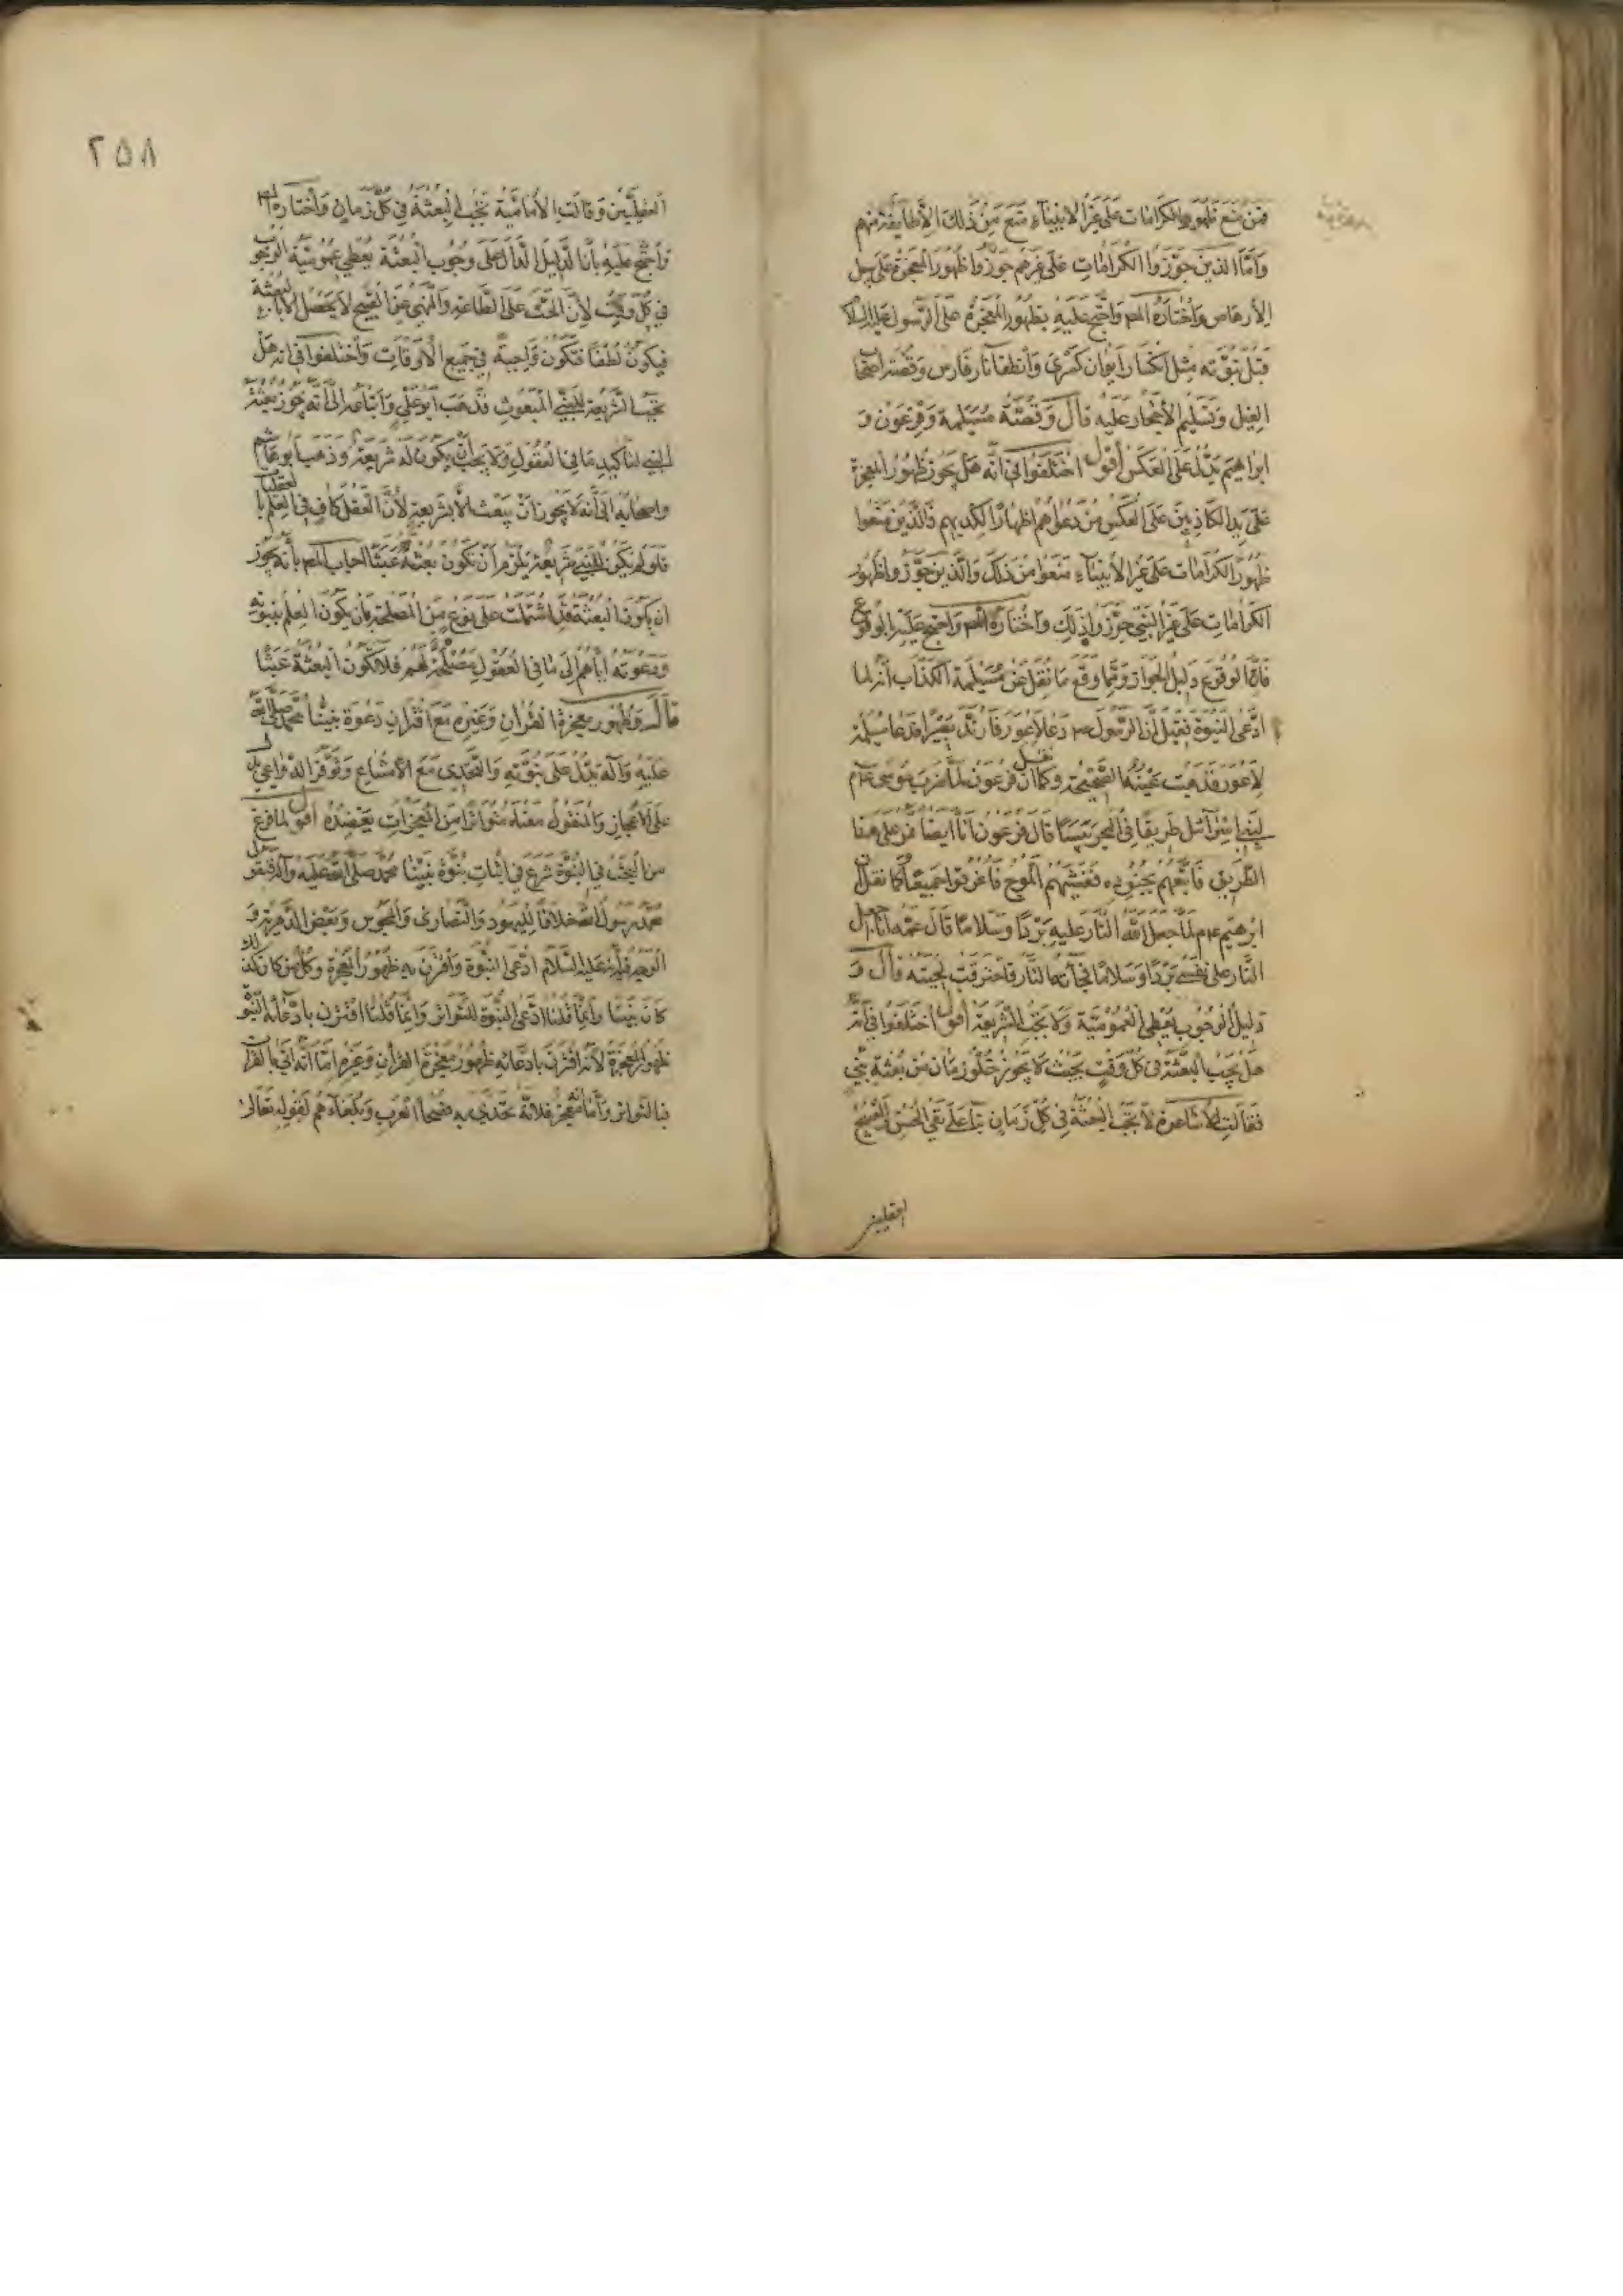 فمن منع ظهور الكرامات على غير الانبياء منع من ذلك الا طايفة منهم
وامّا الذين جوّزوا الكرامات على غيرهم جوّزوا ظهور المعجزة على سبيل
الارهاص واختاره المصـ واحتج عليه بظهور المعجزة على الرسول عليه السلام
قبل نبوّته مثل انكسار ايوان كسرى وانطفا نار فارس وقصّة اصحاب
الفيل وتسليم الاحجار عليه قال وقصّة مسيلمة وفرعون و
ابراهيم يدلّ على العكس اقول اختلفوا في انّه هل يجوز ظهور المعجزة
على يد الكاذبين على العكس من دعواهم اظهارا لكذبهم فالذين منعوا
ظهور الكرامات على غير الانبياء منعوا من ذلك والذين جوّزوا ظهور
الكرامات على غير النبي جوّزوا ذلك واختاره المصـ واحتج عليه بالوقوع
فانّ الوقوع دليل الجواز وممّا وقع ما نقل عن مسيلمة الكذّاب انّه لما
ادّعى النبوّة فقيل انّ الرسول عم دعا لاعور فارتدّ بصيرا فدعا مسيلمة
لاعور فذهبت عينه الصحيحة وكما نقل ان فرعون لمّا ضرب موسى عم
لبني اسرآئيل طريقا في البحر يبسا قال فرعون انا ايضا نمرّ على هذا
الطريق فاتبعهم بجنوده فغشيهم الموج فاغرقوا جميعا وكما نقل انّ
ابرهيم عم لمّا جعل الله النار عليه بردا وسلاما قال عمّه انا اجعل
النّار على نفسي بردا وسلاما فجآءته النار فاحترقت لحيته قال و
دليل الوجوب يعطي العموميّة ولا يجب الشريعة اقول اختلفوا في انّه
هل يجب البعثة في كلّ وقت بحيث لا يجوز خلوّ زمان من بعثة نبيّ
فقالت الاشاعرة لا تجب البعثة في كلّ زمان بناء على نفي الحسن والقبح
العقليين
٢٥٨
العقليّين وقالت الاماميّة تجب البعثة في كلّ زمان واختاره المصـ
واحتجّ عليه بانّ الدليل الدّال على وجوب البعثة يعطي عموميّة الوجوب
في كلّ وقت لانّ الحثّ على الطاعة والنهي عن القبيح لا يحصل الا بالبعثة
فيكون لطفا فتكون واجبة في جميع الاوقات واختلفوا في انه هل
يجب الشريعة للنبي المبعوث فذهب ابو علي واتباعه الى انّه يجوز بعثة
النبي لتاكيد ما في العقول ولا يجب ان يكون له شريعة وذهب ابو هاشم
واصحابه الى انّه لا يجوز ان يبعث الا بشريعة لانّ العقل كاف في العلم بالعقليات
فلو لم يكن للنبي شريعة يلزم ان تكون بعثته عبثا اجاب المصـ بانّه يجوز
ان يكون البعثة قد اشتملت على نوع من المصلحة بان يكون العلم بنبوته
ودعوته اياهم الى ما في العقول مصلحة لهم فلا تكون البعثة عبثا
قال وظهور معجزة القران وغيره مع اقتران دعوة نبيّنا محمّد صلّى الله
عليه وآله يدلّ على نبوّته والتحدّي مع الامتناع وتوفّر الدواعي يدل
على الاعجاز والمنقول معناه متواترا من المعجزات يعضده اقول لما فرغ
من البحث في النبوّة شرع في اثبات نبوّة نبيّنا محمّد صلّى الله عليه وآله فنقول
محمّد رسول الله خلافا لليهود والنصارى والمجوس وبعض الدهرية و
الوجه فيه انه عليه السّلام ادّعى النبوّة واقترن به ظهور المعجزة وكلّ من كان كذلك
كان نبيّا وانّما قلنا ادّعى النبوّة للتواتر وانّما قلنا اقترن بادّعائه النبوّة
ظهور المعجزة لانّه اقترن بادّعائه ظهور معجزة القران وغيره امّا انّه اتى بالقران
فبالتواتر وأما انه معجز فلانّه تحدّى به فصحآ العرب وبلغآءهم لقوله تعالى